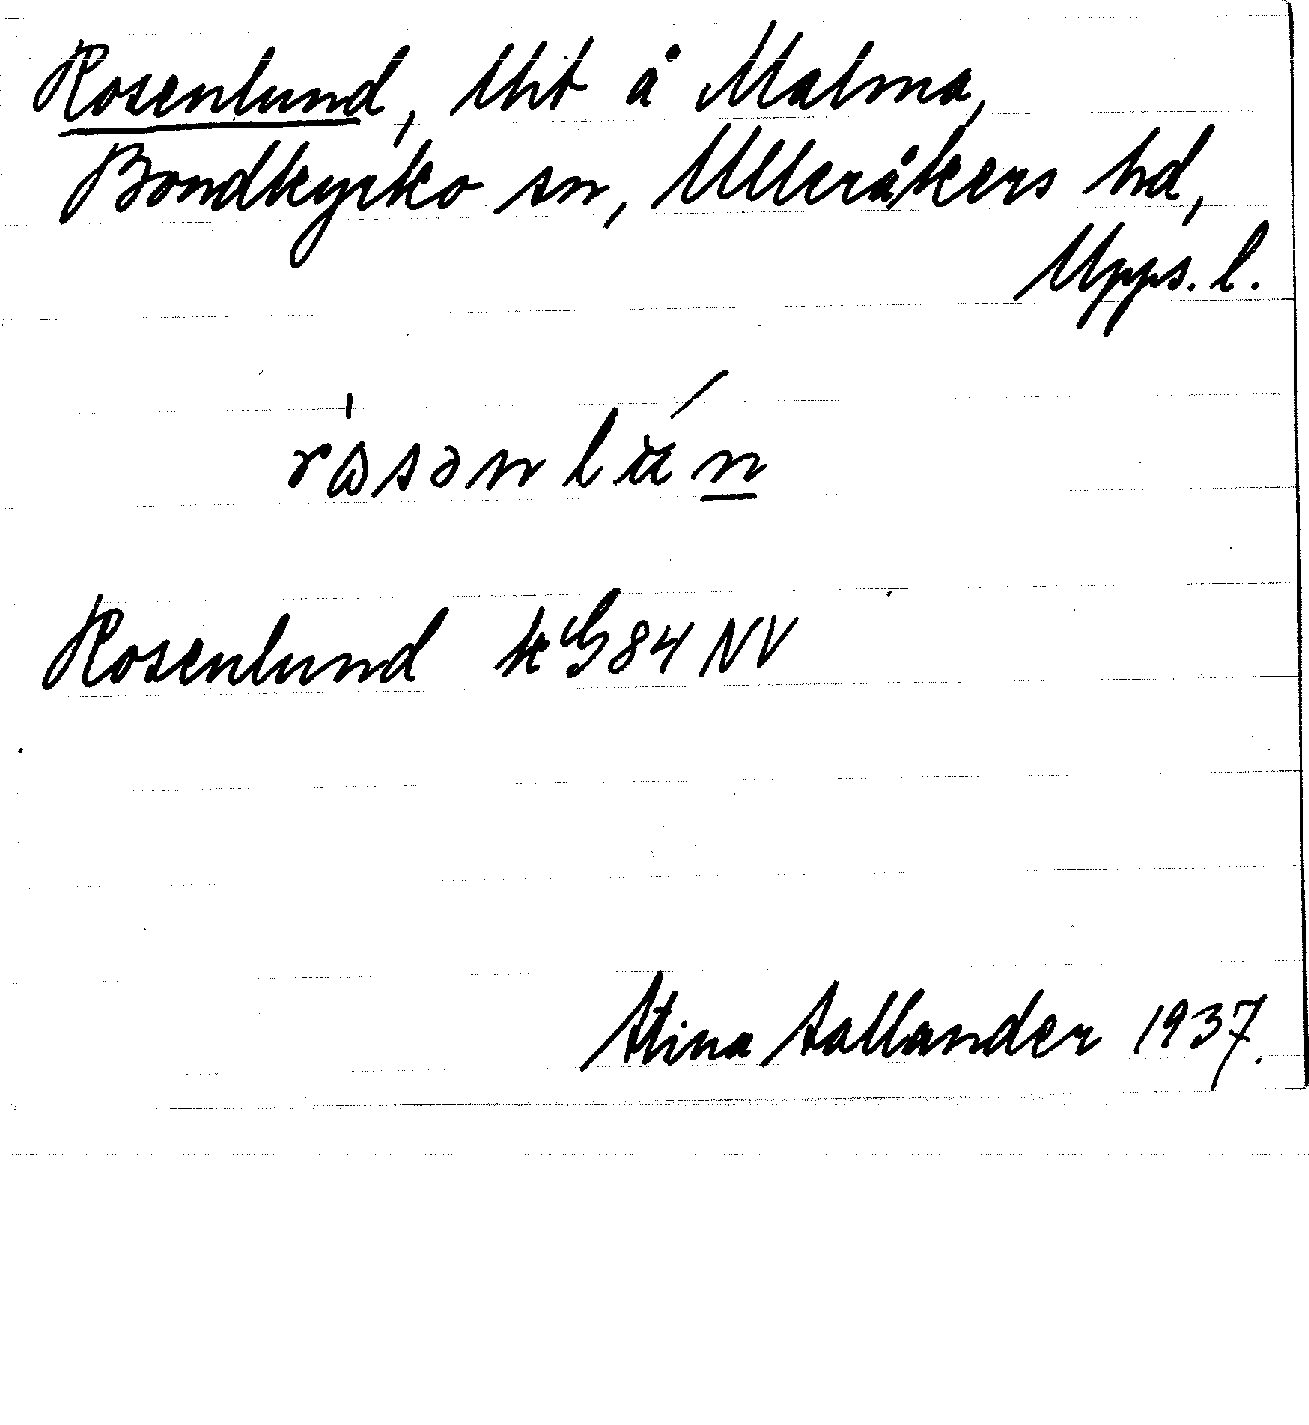 Rosenlund, lht å Malma,
Bondkyrko sn, Ulleråkers hd,
Upps. l.
Rosenlund k G84 NV
Stina Sallander 1937.